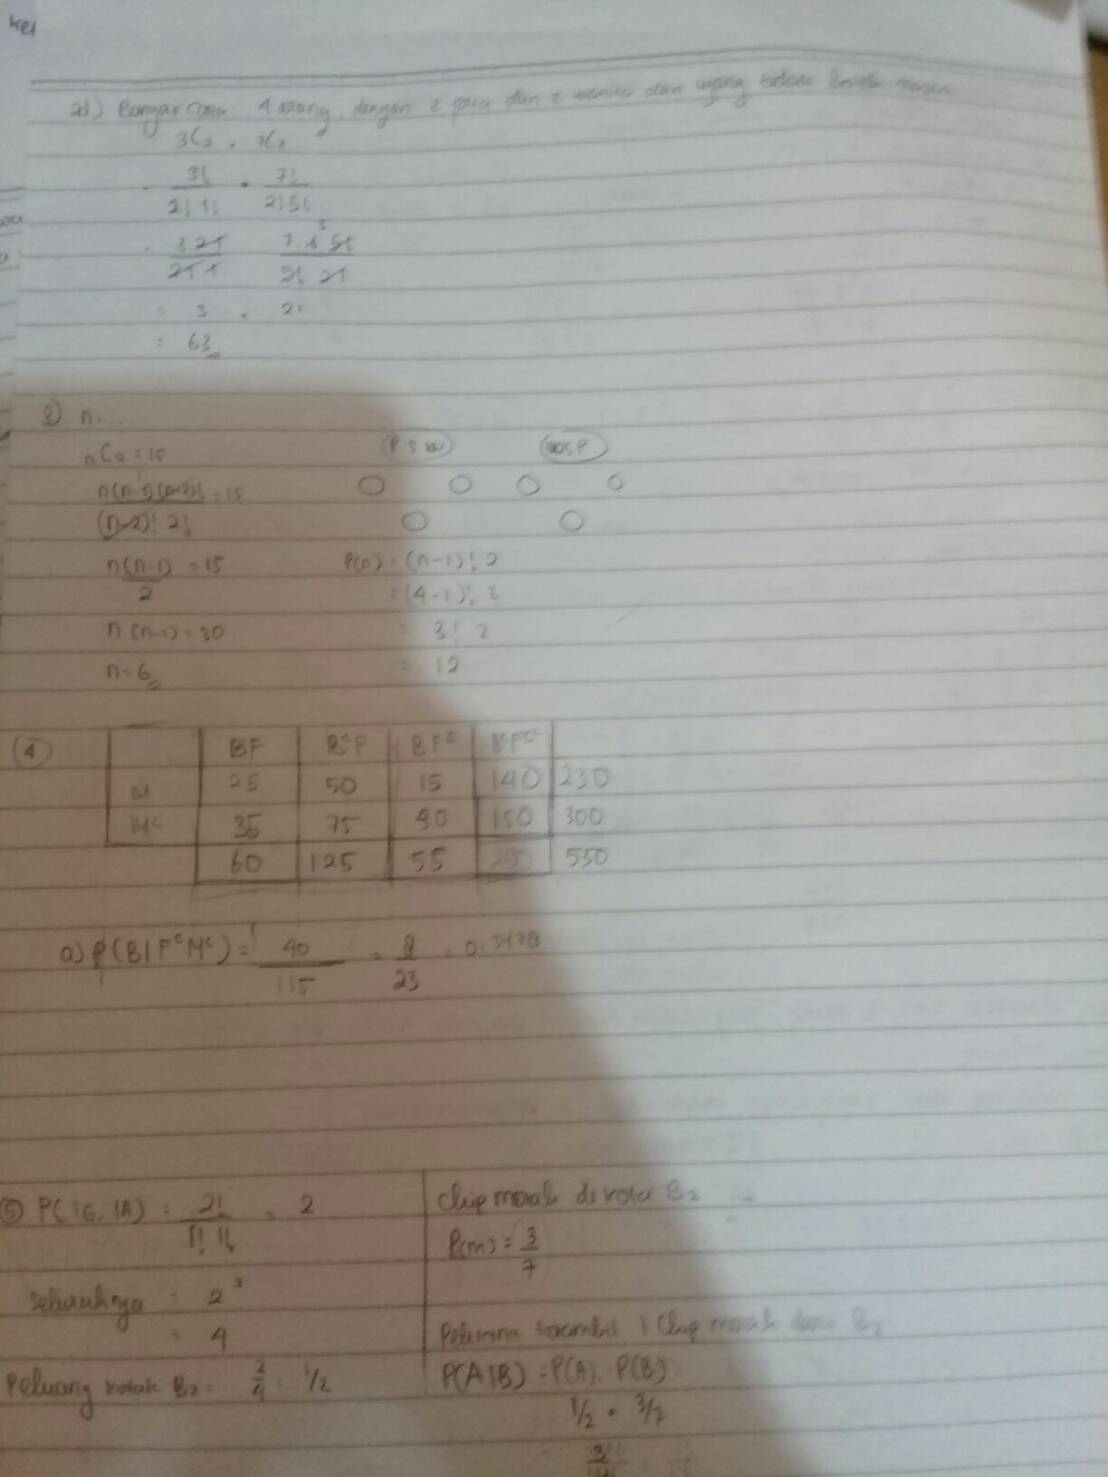 kel
2d) Banyak cara 4 orang dengan 2 pria dan 2 wanita dan yang
3C2 . 7C2
3! . 7!
2! 1! 2! 5!
3 2! 7 6 5!
2! 1 5! 2!
= 3 . 21
= 63
3) n....
nC2 = 15
n(n-1)(n-2)! = 15
(n-2)! 2!
n(n-1) = 15
2
n(n-1) = 30
n = 6
P(n) = (n-1)! 2
= (4-1)! 2
= 3! 2
= 12
4
BF BᶜF BFᶜ BᶜFᶜ
M 25 50 15 140 230
Mᶜ 35 75 40 150 300
60 125 55 290 530
a) P(B|FᶜMᶜ) = 40 = 8 = 0.3478
115 23
5 P(1G, 1A) = 2! = 2
1! 1!
seluruhnya = 2²
= 4
Peluang kotak B2 = 2/4 = 1/2
Chip merah di kotak B2
P(m) = 3
7
terambil 1 Chip merah dari B2
P(A|B) = P(A). P(B)
1/2 . 3/7